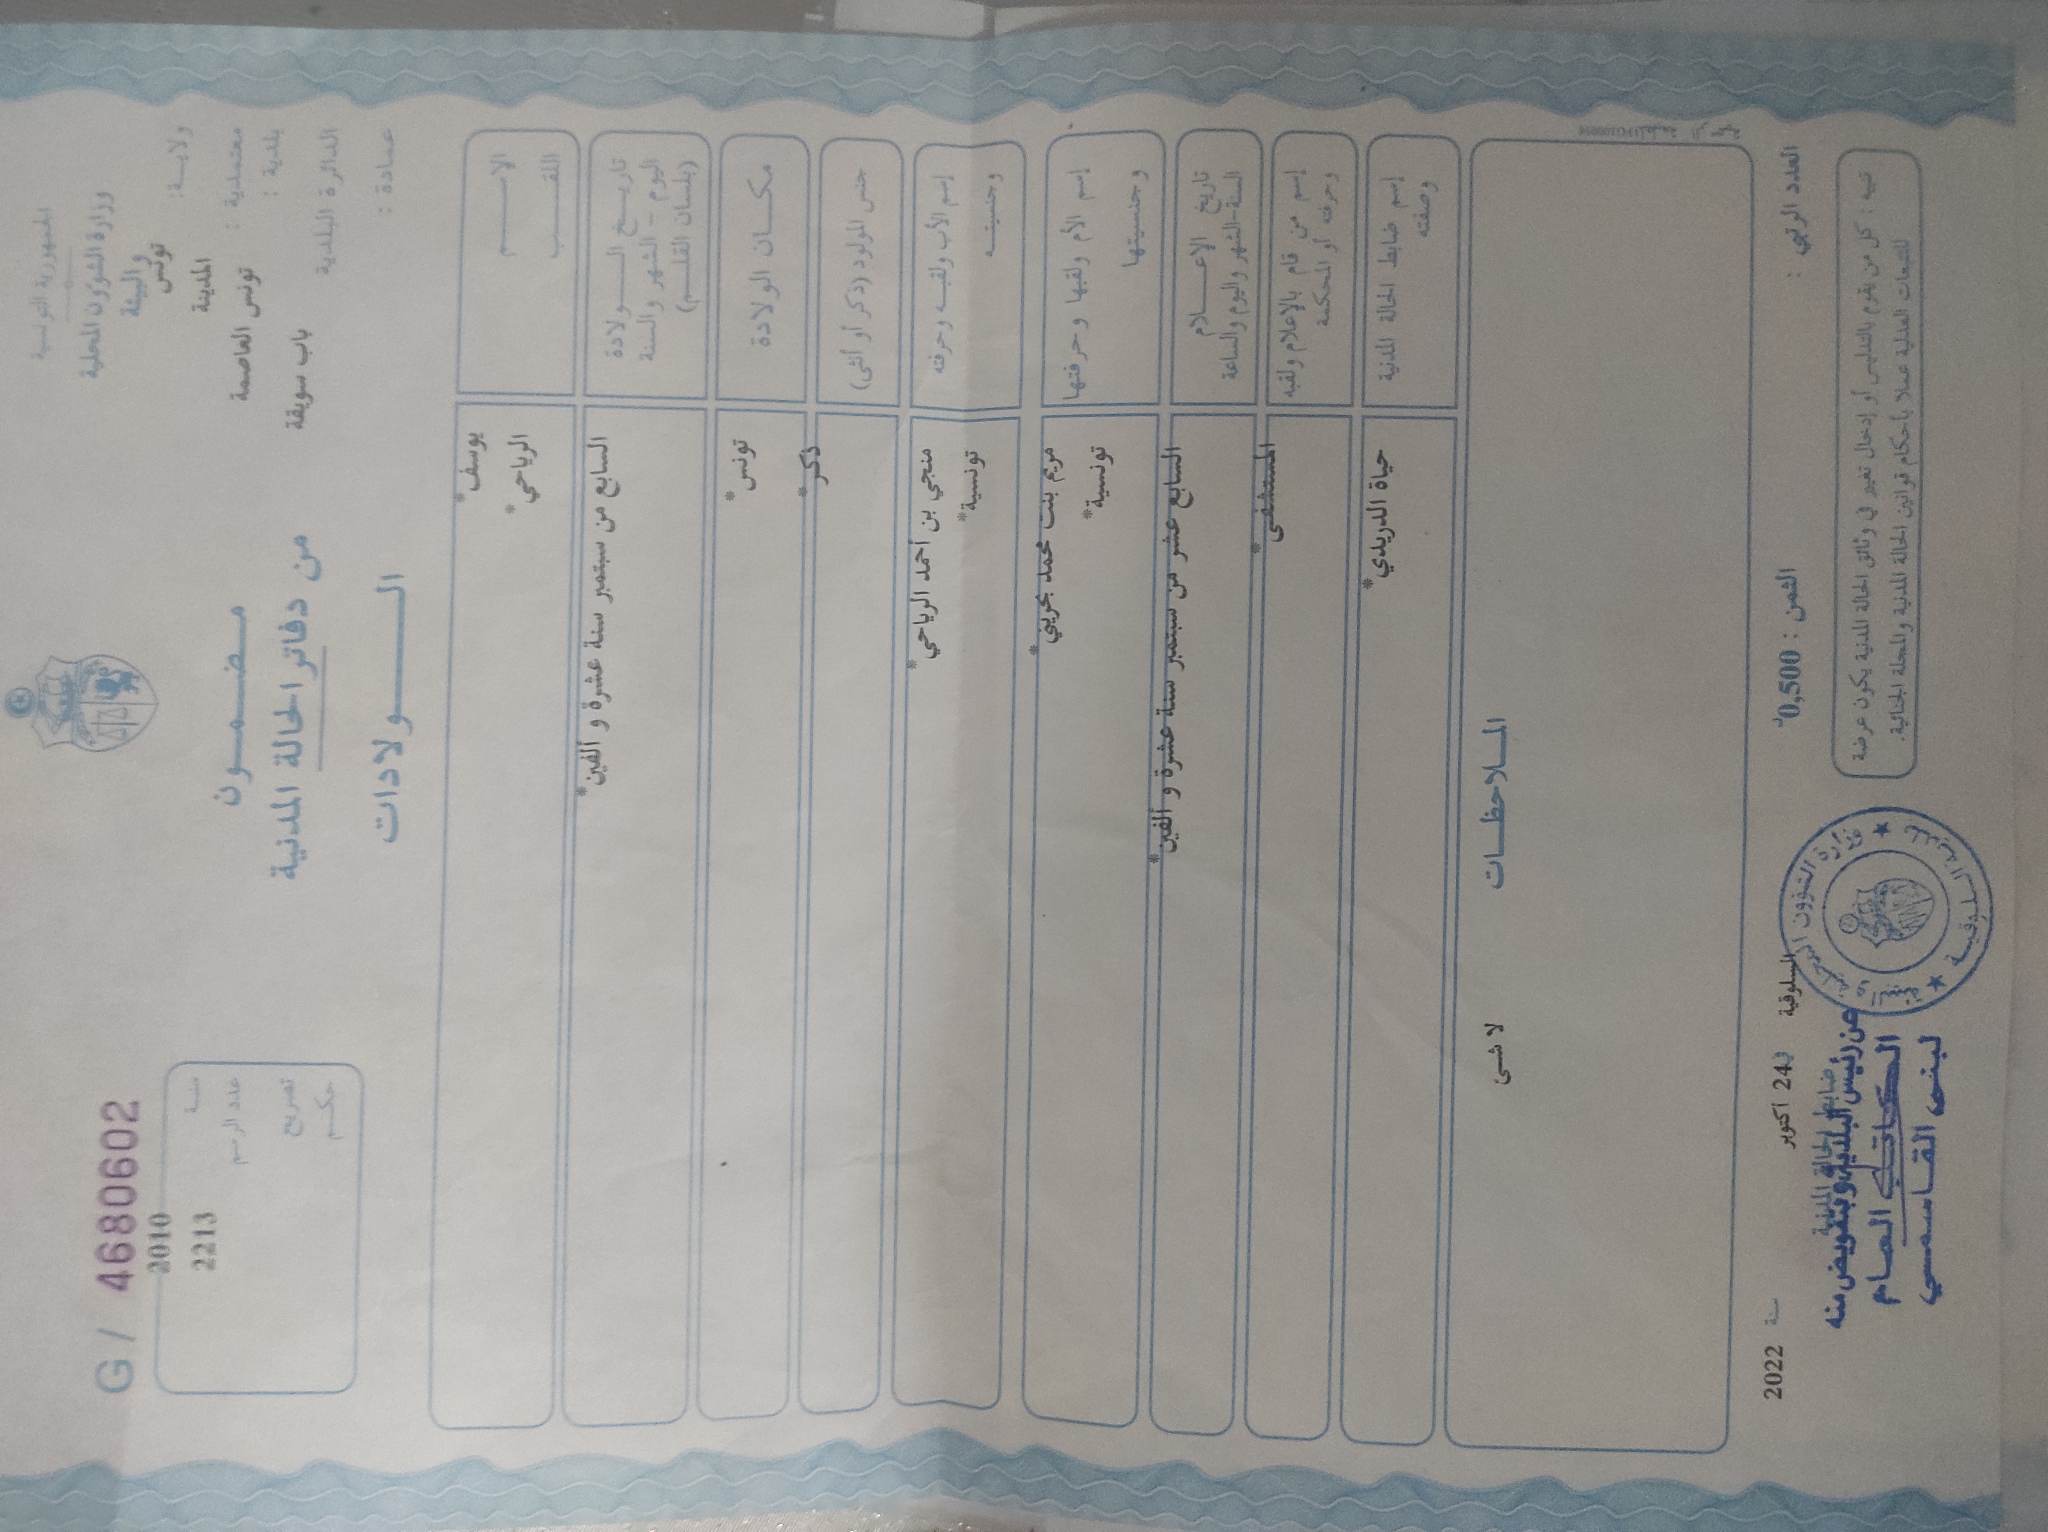 الجمهورية التونسية
وزارة الشؤون المحلية
والبيئة
ولايــة : تونس
معتمدية : المدينة
بلدية : تونس العاصمة
الدائرة البلدية باب سويقة
عمادة :
مضمـــون
من دفاتر الحالة المدنية
الـــولادات
G / 4680602
سنة 2010
عدد الرسم 2213
تصريح
حكم
الاســـم يوسف*
اللقـــب الرياحي*
تاريـــخ الـــولادة
اليوم - الشهر والسنة
(بلسان القلـــم)
السابع من سبتمبر سنة عشرة و ألفين*
مكـــان الولادة تونس*
جنس المولود (ذكر أو أنثى) ذكر*
إسم الأب ولقبـه وحرفته منجي بن أحمد الرياحي*
وجنسيتـه تونسية*
إسم الأم ولقبها وحرفتها مريم بنت محمد بحريني*
وجنسيتها تونسية*
تاريخ الاعـــلام
السنة-الشهر واليوم والساعة
السابع عشر من سبتمبر سنة عشرة و ألفين*
إسم من قام بالاعلام ولقبه
وحرفته أو المحكمة
المستشفى*
إسم ضابط الحالة المدنية
وصفته
حياة الدريدي*
الملاحظـــات
لا شئ
العدد الرتبي :
الثمن : 0,500د
السلوقية في 24 أكتوبر سنة 2022
تنبيه : كل من يقوم بالتدليس أو إدخال تغيير في وثائق الحالة المدنية يكون عرضة
للتبعات العدلية عملا بأحكام قوانين الحالة المدنية والمجلة الجنائية.
ضابط الحالة المدنية
عن رئيس البلدية وبتفويض منه
الكاتب العام
لبنى القاسمي
وزارة الشؤون المحلية
السلوقية